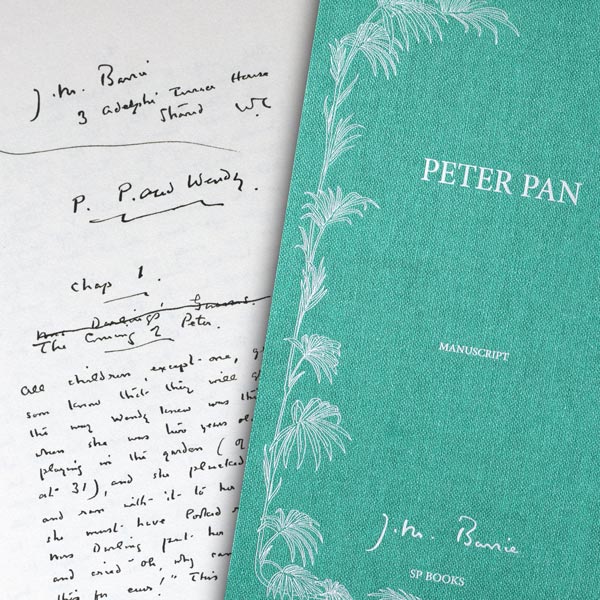 J.M. Barrie
3 Adelphi Terrace House
Strand W.C
P. P. and Wendy.
Chap 1.
Mrs Darling's
The Coming of Peter.
All children, except one, g
soon know that they will g
the way Wendy knew was thi
when she was two years ol
playing in the garden (of
at 31), and she plucked
and ran with it to her
she must have looked
Mrs Darling put her
and cried "oh, why can
this for ever!" This
PETER PAN
MANUSCRIPT
J.M. Barrie
SP BOOKS